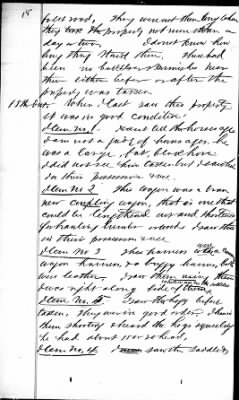 18
road, they were there long when
they took the property not more than a
day or two, I do not know how
long they staid there. There had
been no battle or skirmish near
there either before or after the
property was taken.
When I last saw this property
it was in good condition.
Item No. 1. I can't tell the horse's age
I am not a judge of horse's age. he
was a large, fat, horse
I did not see him taken but I saw him
in their possession
Item No. 2 This wagon was a bran
new coupling wagon, that is one that
could be lengthened up and shortened
for hauling lumber and I saw them
in their possession
Item No. 3 The harness was
wagon harness, buggy harness, both
were leather, I saw them using them
I was right along side of them
Item No. 5. I saw the hogs before
taken, they were in good order, I heard
them shooting & heard the hogs squealing
he had about 10 or so head,
Item No. 4. I saw the saddles